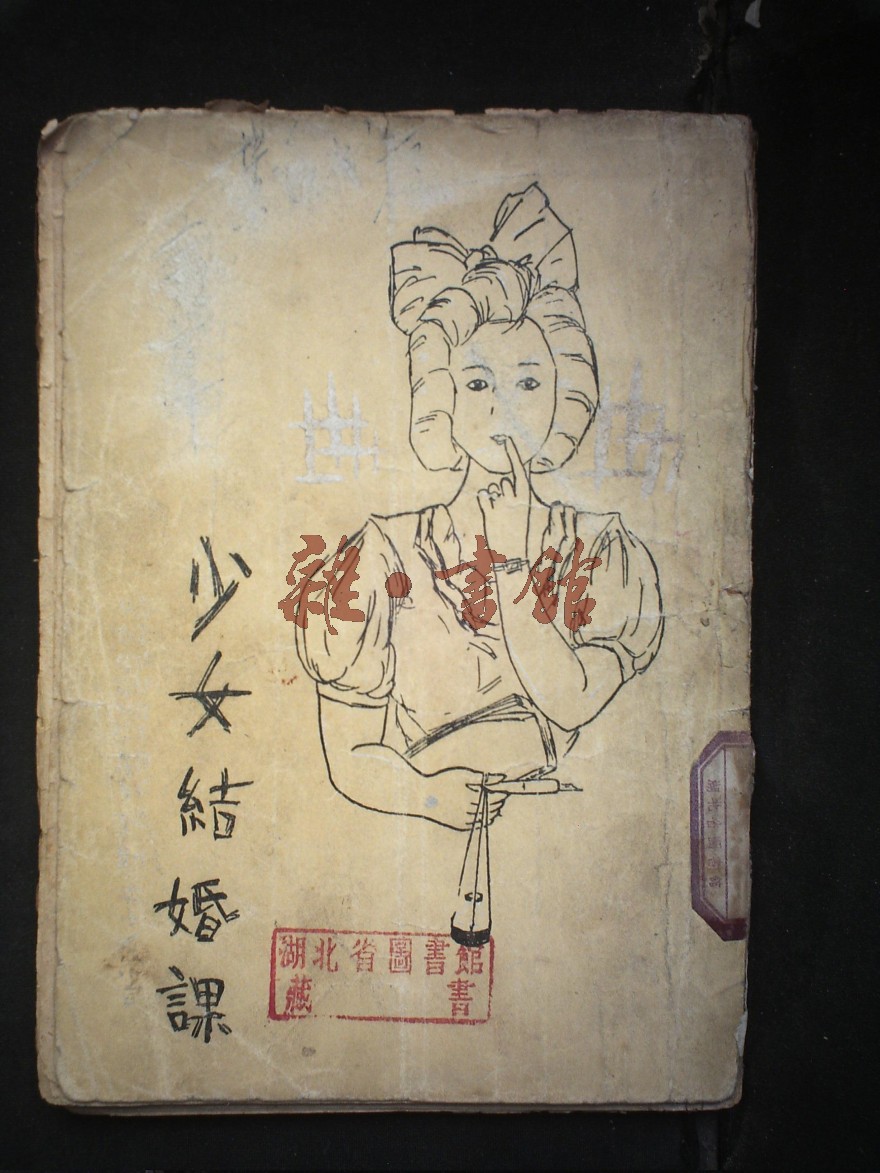 少女結婚課
雜·書館
湖北省圖書館
藏書